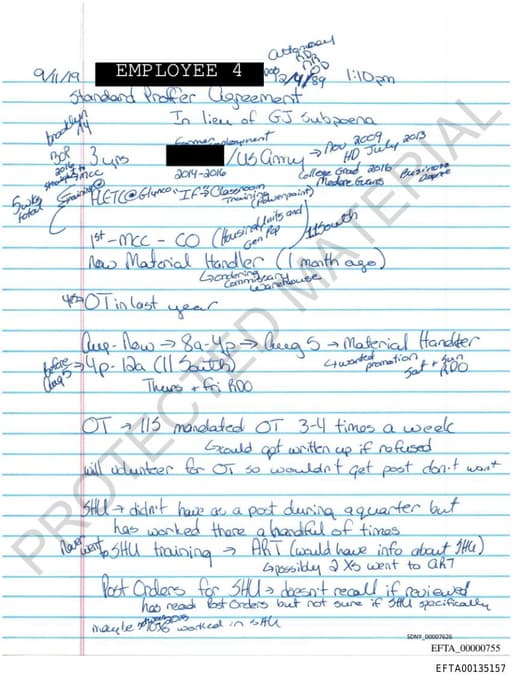 attorney
RDR
9/11/19 EMPLOYEE 4 DOB 12/4/89 1:10pm
Standard Proffer Agreement
In lieu of GJ Subpoena
Brooklyn
NY
former employment
BOP 3 yrs /US Army → Nov 2009
HD July 2013
2016 2014-2016 College Grad 2016 Business
MCC Medgar Evers Degree
5 wks
total
Training @
FLETC @ Glynco, IF → Classroom
training (Powerpoint)
1st - MCC - CO (Housing Units and
Gen Pop) 11 South
Now Material Handler (1 month ago)
↳ ordering
Commissary
warehouse
OT in last year
Aug - Now → 8a-4p → Aug 5 → Material Handler
↳ wanted
promotion Sat + Sun
RDO
before
Aug 5 → 4p-12a (11 South)
Thurs + Fri RDO
OT → 115 mandated OT 3-4 times a week
↳ could get written up if refused
will volunteer for OT so wouldn't get post don't want
SHU → didn't have as a post during a quarter but
has worked there a handful of times
Never went
to SHU training → ART (would have info about SHU)
↳ possibly 2 Xs went to ART
Post Orders for SHU → doesn't recall if reviewed
has read Post Orders but not sure if SHU specifically
maybe worked in SHU
PROTECTED MATERIAL
SDNY_00007626
EFTA_00000755
EFTA00135157